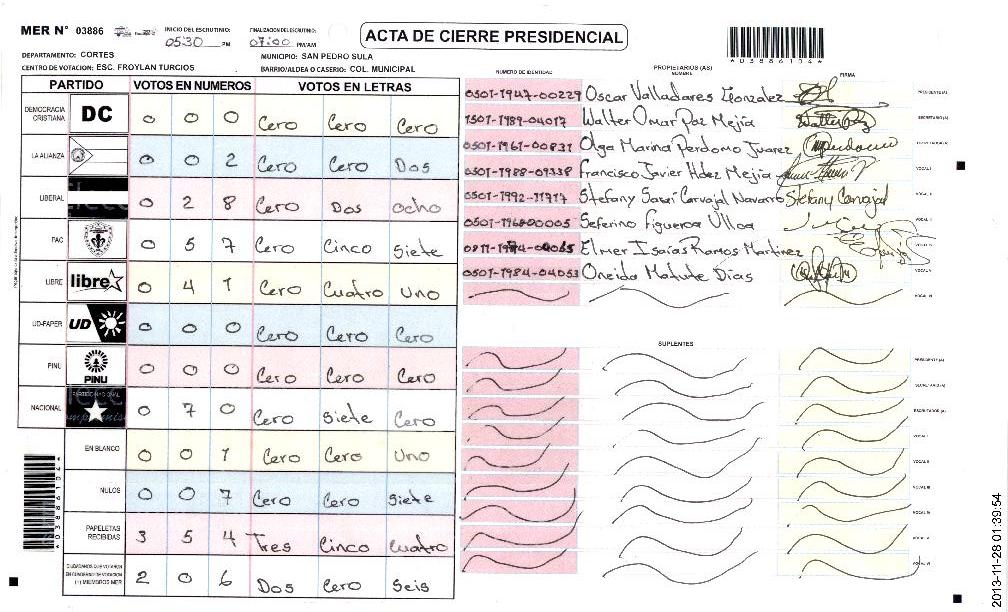 MER N° 03886
INICIO DEL ESCRUTINIO:
0530 PM
FINALIZACION DEL ESCRUTINIO:
07:00 PM/AM
ACTA DE CIERRE PRESIDENCIAL
*0388610 4*
DEPARTAMENTO: CORTES
MUNICIPIO: SAN PEDRO SULA
CENTRO DE VOTACION: ESC. FROYLAN TURCIOS
BARRIO/ALDEA O CASERIO: COL. MUNICIPAL
PARTIDO VOTOS EN NUMEROS VOTOS EN LETRAS
DEMOCRACIA CRISTIANA DC 0 0 0 Cero Cero Cero
LA ALIANZA 0 0 2 Cero Cero Dos
LIBERAL 0 2 8 Cero Dos ocho
PAC 0 5 7 Cero Cinco Siete
LIBRE libre 0 4 1 Cero Cuatro Uno
UD-FAPER UD 0 0 0 Cero Cero Cero
PINU PINU 0 0 0 Cero Cero Cero
NACIONAL 0 7 0 Cero Siete Cero
EN BLANCO 0 0 1 Cero Cero Uno
NULOS 0 0 7 Cero Cero Siete
PAPELETAS RECIBIDAS 3 5 4 Tres Cinco Cuatro
CIUDADANOS QUE VOTARON EN CUADERNO DE VOTACION (*) MIEMBROS MER 2 0 6 Dos Cero Seis
PROPIETARIOS (AS)
NUMERO DE IDENTIDAD NOMBRE FIRMA
0501-1947-00229 Oscar Valladares Gonzalez PRESIDENTE(A)
1501-1989-04017 Walter Omar Paz Mejía SECRETARIO(A)
0501-1961-00831 Olga Marina Perdomo Juarez
0501-1988-09338 Francisco Javier Hdez Mejía VOCAL I
0501-1992-11717 Stefany Sarai Carvajal Navarro Stefany Carvajal
Seferino Figueroa Ulloa
Elmer Isaías Ramos Martinez
0501-1984-04053 Oneida Matute Dias
SUPLENTES
PRESIDENTE (A)
SECRETARIO (A)
ESCRUTADOR (A)
VOCAL I
VOCAL II
VOCAL III
VOCAL IV
VOCAL V
VOCAL VI
2013-11-28 01:39:54